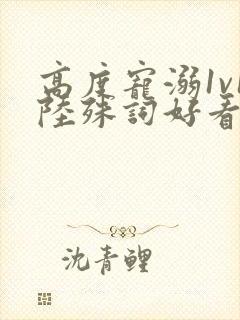 高度寵溺1v1
陸殊詞好看
沈青鯉